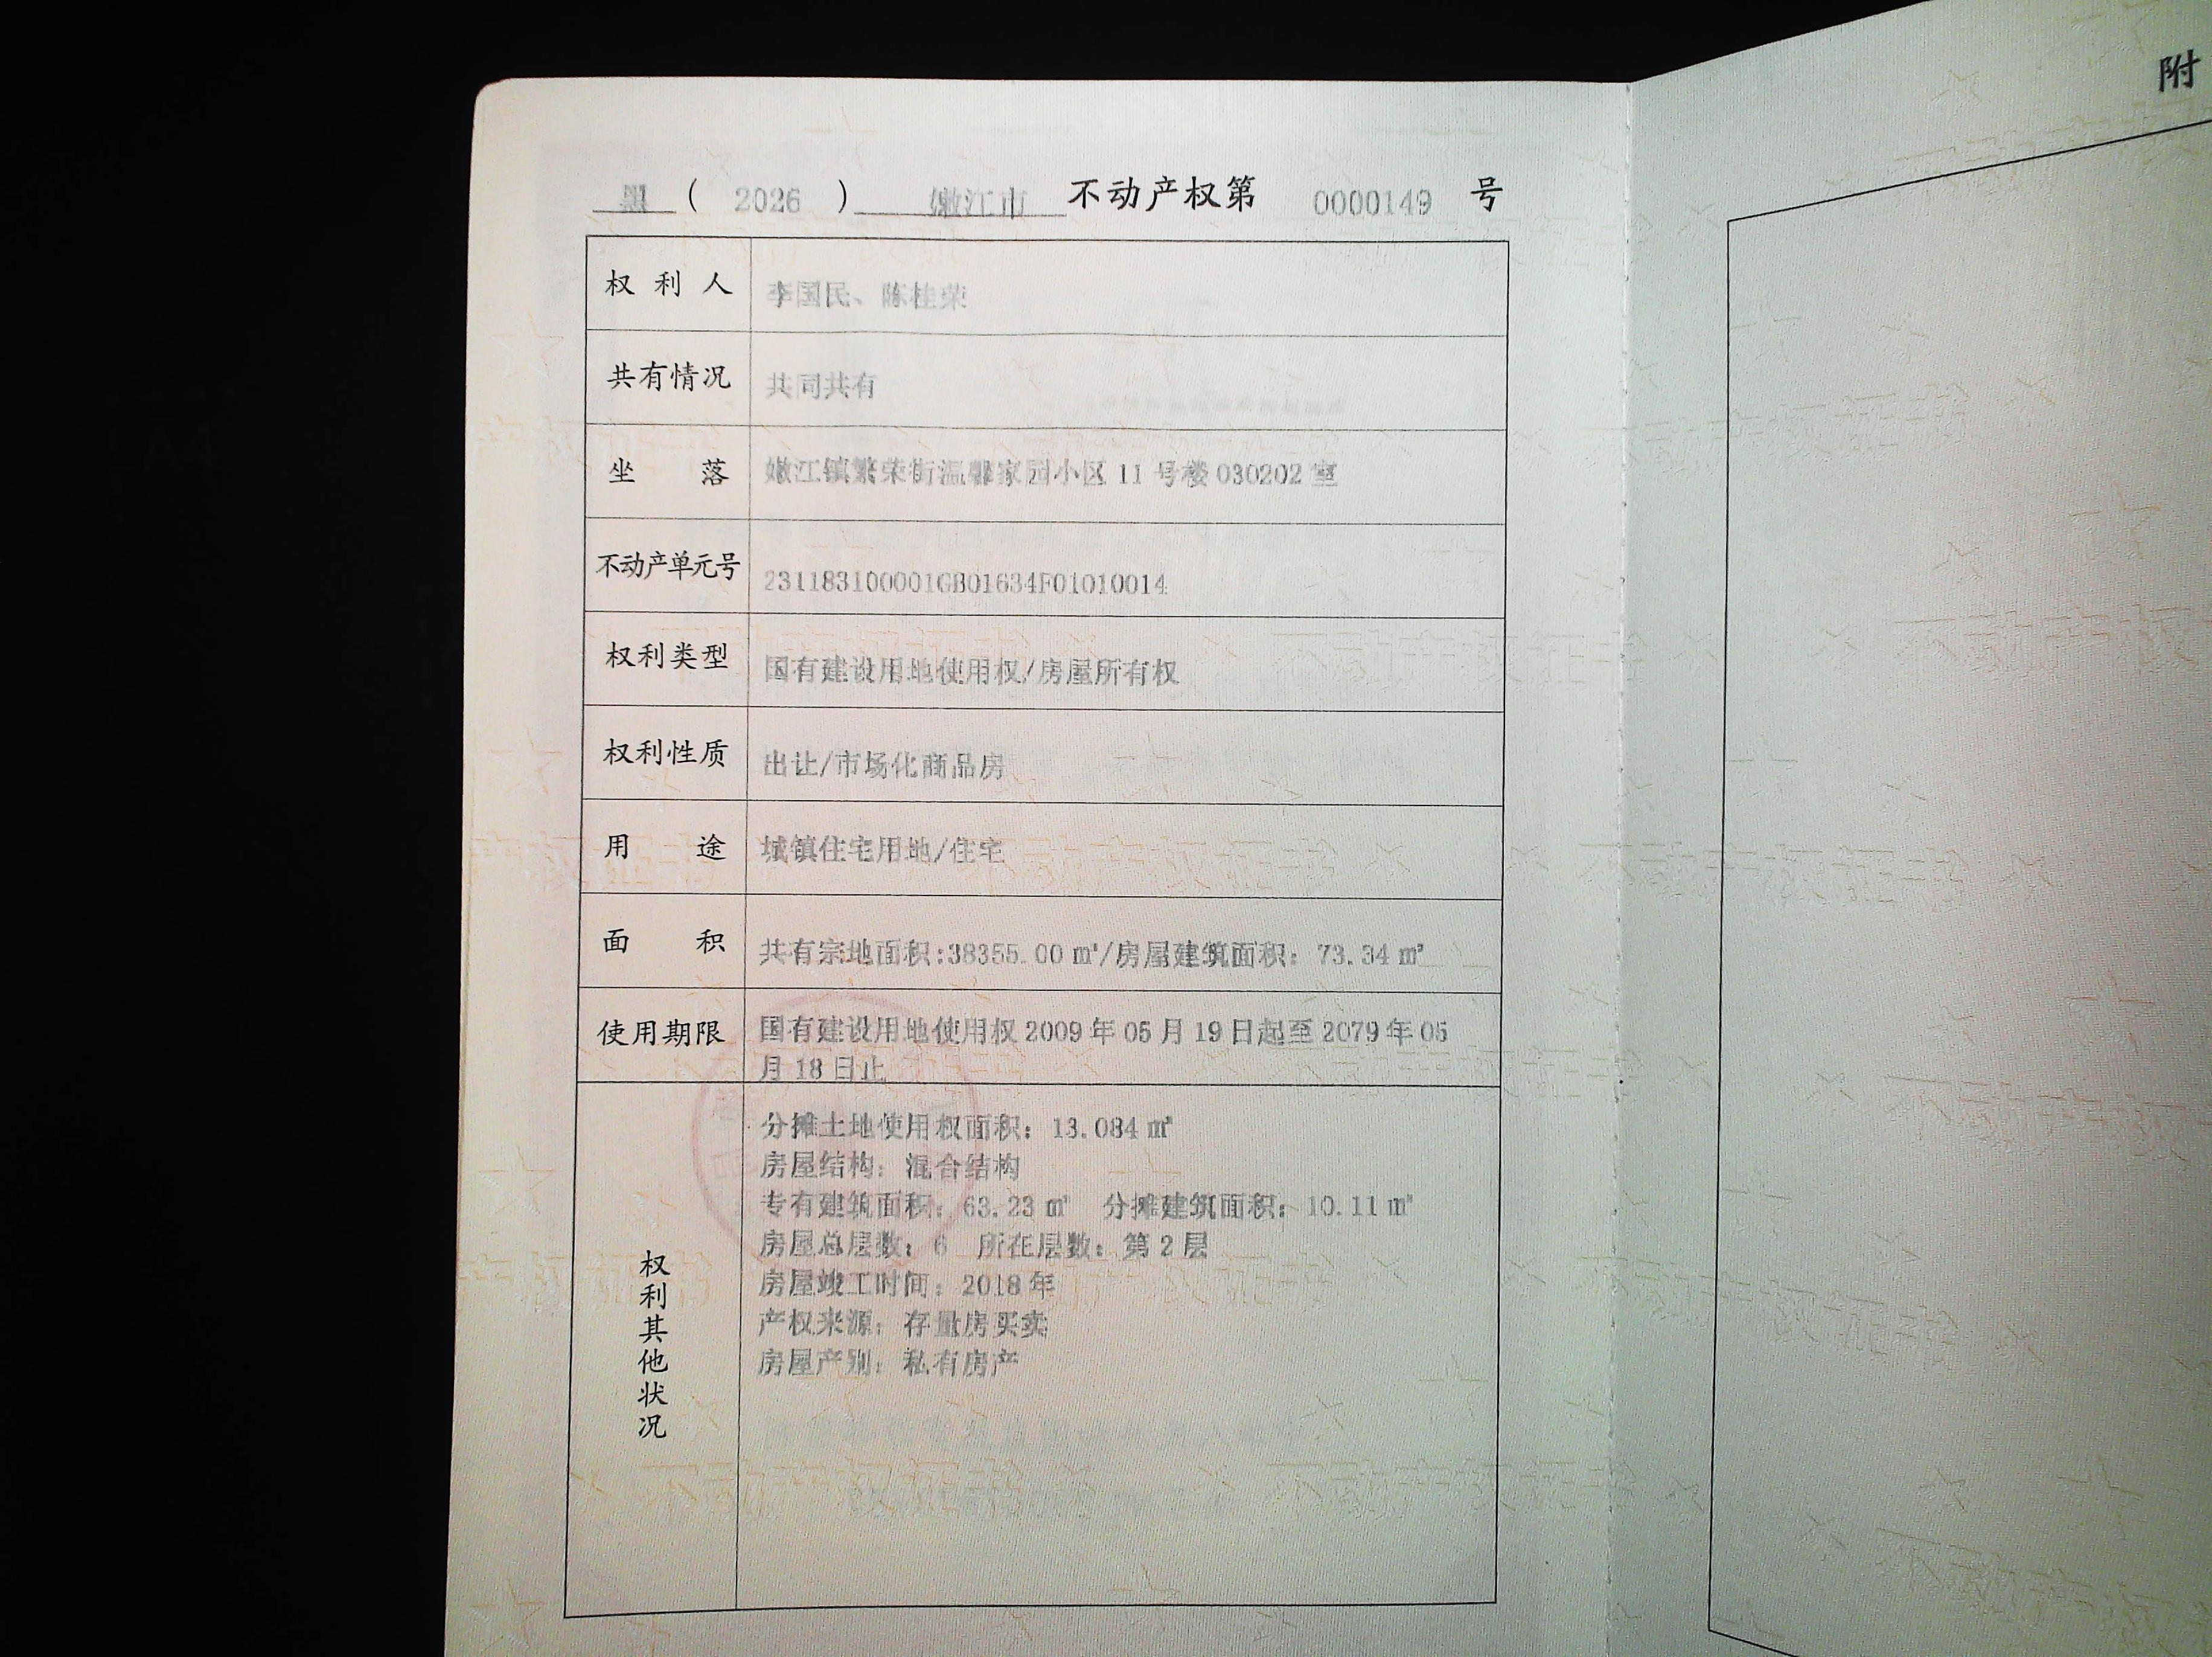 黑 ( 2026 ) 嫩江市 不动产权第 0000149 号
权利人 李国民、陈桂荣
共有情况 共同共有
坐落 嫩江镇繁荣街温馨家园小区 11 号楼 030202 室
不动产单元号 231183100001GB01634F01010014
权利类型 国有建设用地使用权/房屋所有权
权利性质 出让/市场化商品房
用途 城镇住宅用地/住宅
面积 共有宗地面积:38355.00 ㎡/房屋建筑面积：73.34 ㎡
使用期限 国有建设用地使用权 2009 年 05 月 19 日起至 2079 年 05
月 18 日止
权利其他状况
分摊土地使用权面积：13.084 ㎡
房屋结构：混合结构
专有建筑面积：63.23 ㎡ 分摊建筑面积：10.11 ㎡
房屋总层数：6 所在层数：第 2 层
房屋竣工时间：2018 年
产权来源：存量房买卖
房屋产别：私有房产
附